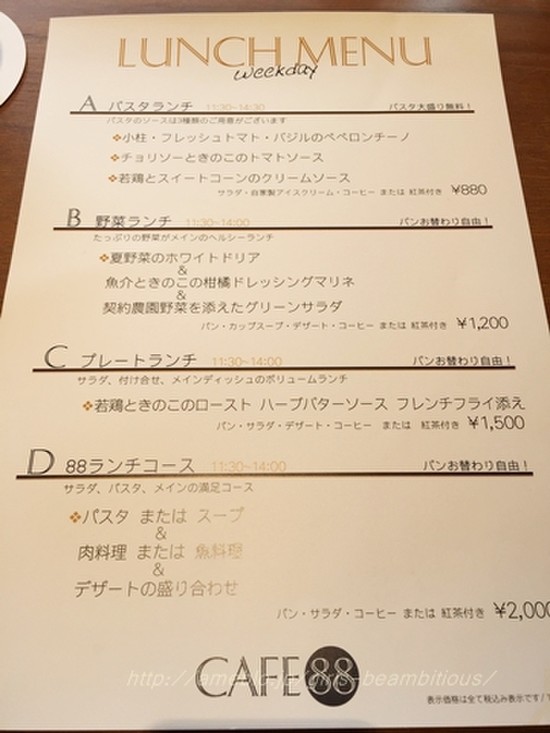 LUNCH MENU
weekday
A パスタランチ 11:30~14:30 パスタ大盛り無料！
パスタのソースは3種類のご用意がございます
❖小柱・フレッシュトマト・バジルのペペロンチーノ
❖チョリソーときのこのトマトソース
❖若鶏とスイートコーンのクリームソース
サラダ・自家製アイスクリーム・コーヒー または 紅茶付き ¥880
B 野菜ランチ 11:30~14:00 パンお替わり自由！
たっぷりの野菜がメインのヘルシーランチ
❖夏野菜のホワイトドリア
&
魚介ときのこの柑橘ドレッシングマリネ
&
契約農園野菜を添えたグリーンサラダ
パン・カップスープ・デザート・コーヒー または 紅茶付き ¥1,200
C プレートランチ 11:30~14:00 パンお替わり自由！
サラダ、付け合せ、メインディッシュのボリュームランチ
❖若鶏ときのこのロースト ハーブバターソース フレンチフライ添え
パン・サラダ・デザート・コーヒー または 紅茶付き ¥1,500
D 88ランチコース 11:30~14:00 パンお替わり自由！
サラダ、パスタ、メインの満足コース
❖パスタ または スープ
&
肉料理 または 魚料理
&
デザートの盛り合わせ
パン・サラダ・コーヒー または 紅茶付き ¥2,000
CAFE 88
http://ameblo.jp/girls-beambitious/
表示価格は全て税込み表示です/